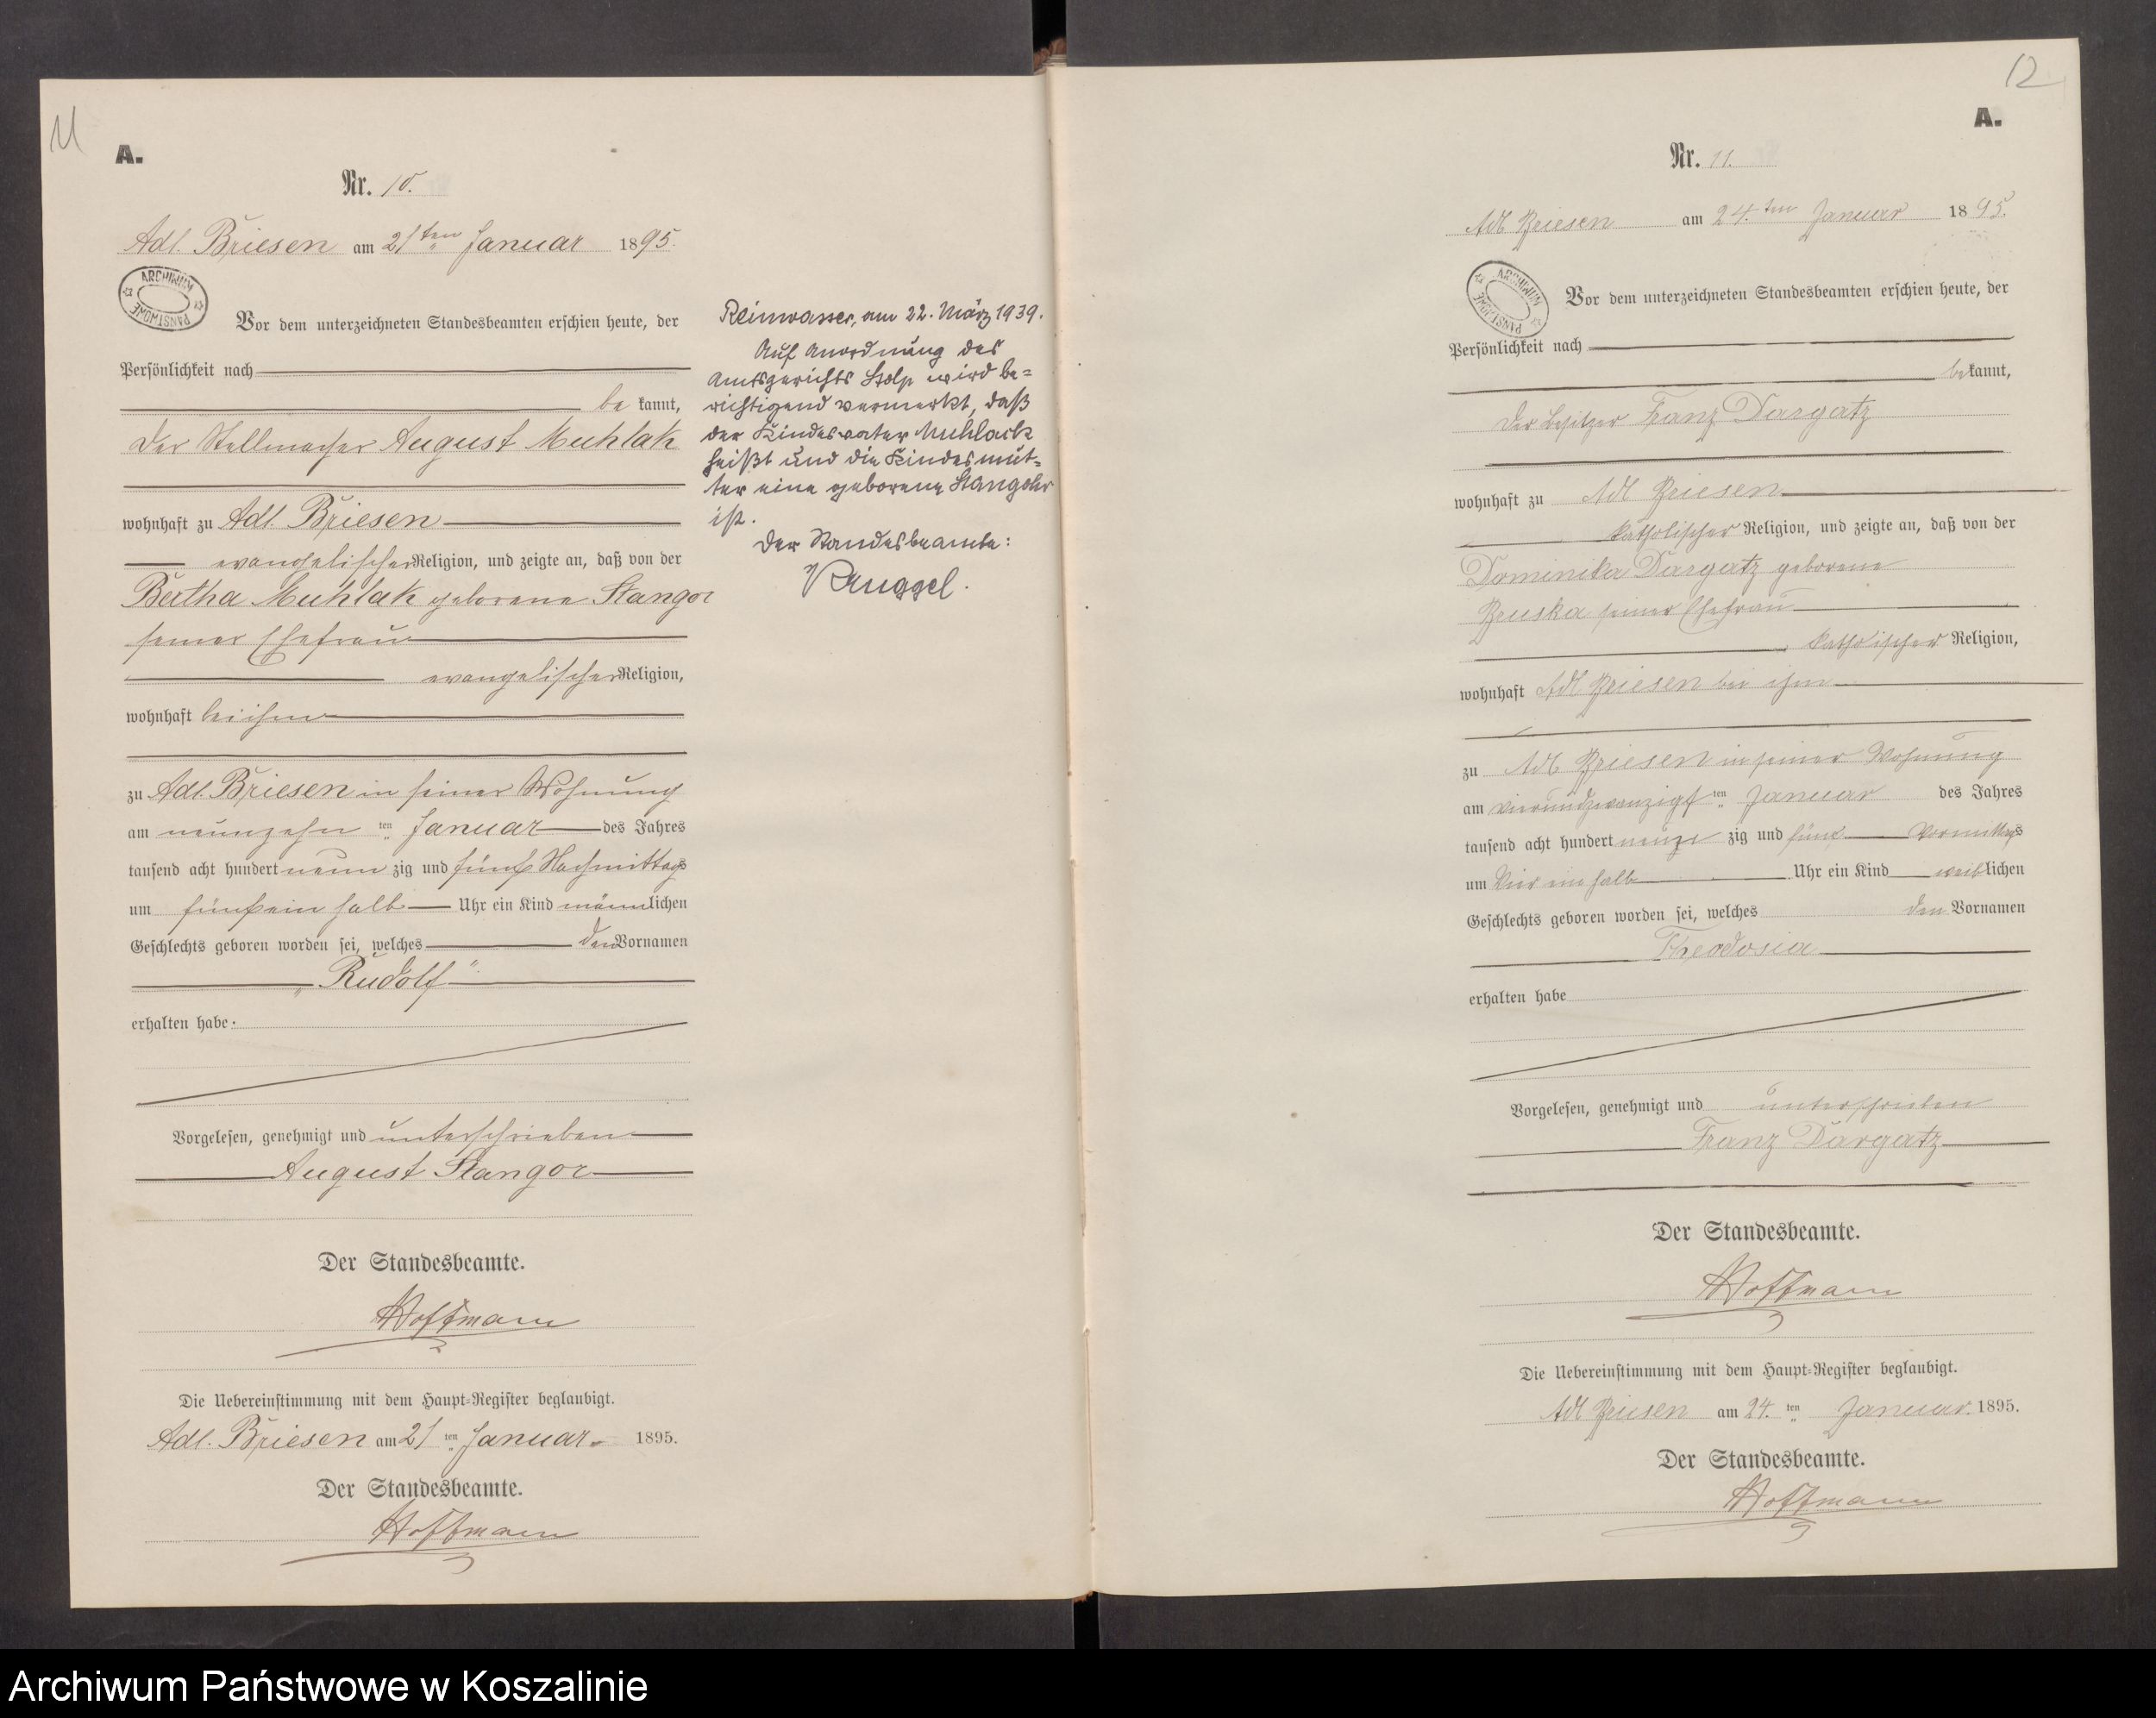 11
A.
Nr. 10.
Adl. Briesen am 21ten Januar 1895.
ARCHIWUM PAŃSTWOWE
Vor dem unterzeichneten Standesbeamten erschien heute, der
Persönlichkeit nach
be kannt,
der Stellmacher August Muhlak
wohnhaft zu Adl. Briesen
evangelischer Religion, und zeigte an, daß von der
Bertha Muhlak geborene Stangor
seiner Ehefrau
evangelischer Religion,
wohnhaft bei ihm
zu Adl. Briesen in seiner Wohnung
am neunzehn ten Januar des Jahres
tausend acht hundert neun zig und fünf Nachmittags
um fünf ein halb Uhr ein Kind männlichen
Geschlechts geboren worden sei, welches den Vornamen
„Rudolf"
erhalten habe.
Vorgelesen, genehmigt und unterschrieben
August Stangor
Der Standesbeamte.
Hoffmann
Die Uebereinstimmung mit dem Haupt-Register beglaubigt.
Adl. Briesen am 21 ten Januar 1895.
Der Standesbeamte.
Hoffmann
Reinwasser, am 22. März 1939.
Auf Anordnung des
Amtsgerichts Stolp wird be-
richtigend vermerkt, daß
der Kindesvater Muhlack
heißt und die Kindesmut-
ter eine geborene Stangohr
ist.
Der Standesbeamte:
12
A.
Nr. 11.
Adl Briesen am 24.ten Januar 1895.
ARCHIWUM PAŃSTWOWE
Vor dem unterzeichneten Standesbeamten erschien heute, der
Persönlichkeit nach
be kannt,
der Besitzer Franz Dargatz
wohnhaft zu Adl Briesen
katholischer Religion, und zeigte an, daß von der
Dominika Dargatz geborene
Bruska seiner Ehefrau
katholischer Religion,
wohnhaft Adl Briesen bei ihm
zu Adl Briesen in seiner Wohnung
am vierundzwanzigs ten Januar des Jahres
tausend acht hundert neun zig und fünf Vormittags
um vier ein halb Uhr ein Kind weiblichen
Geschlechts geboren worden sei, welches den Vornamen
Theodosia
erhalten habe
Vorgelesen, genehmigt und unterschrieben
Franz Dargatz
Der Standesbeamte.
Hoffmann
Die Uebereinstimmung mit dem Haupt-Register beglaubigt.
Adl Briesen am 24. ten Januar. 1895.
Der Standesbeamte.
Hoffmann
Archiwum Państwowe w Koszalinie